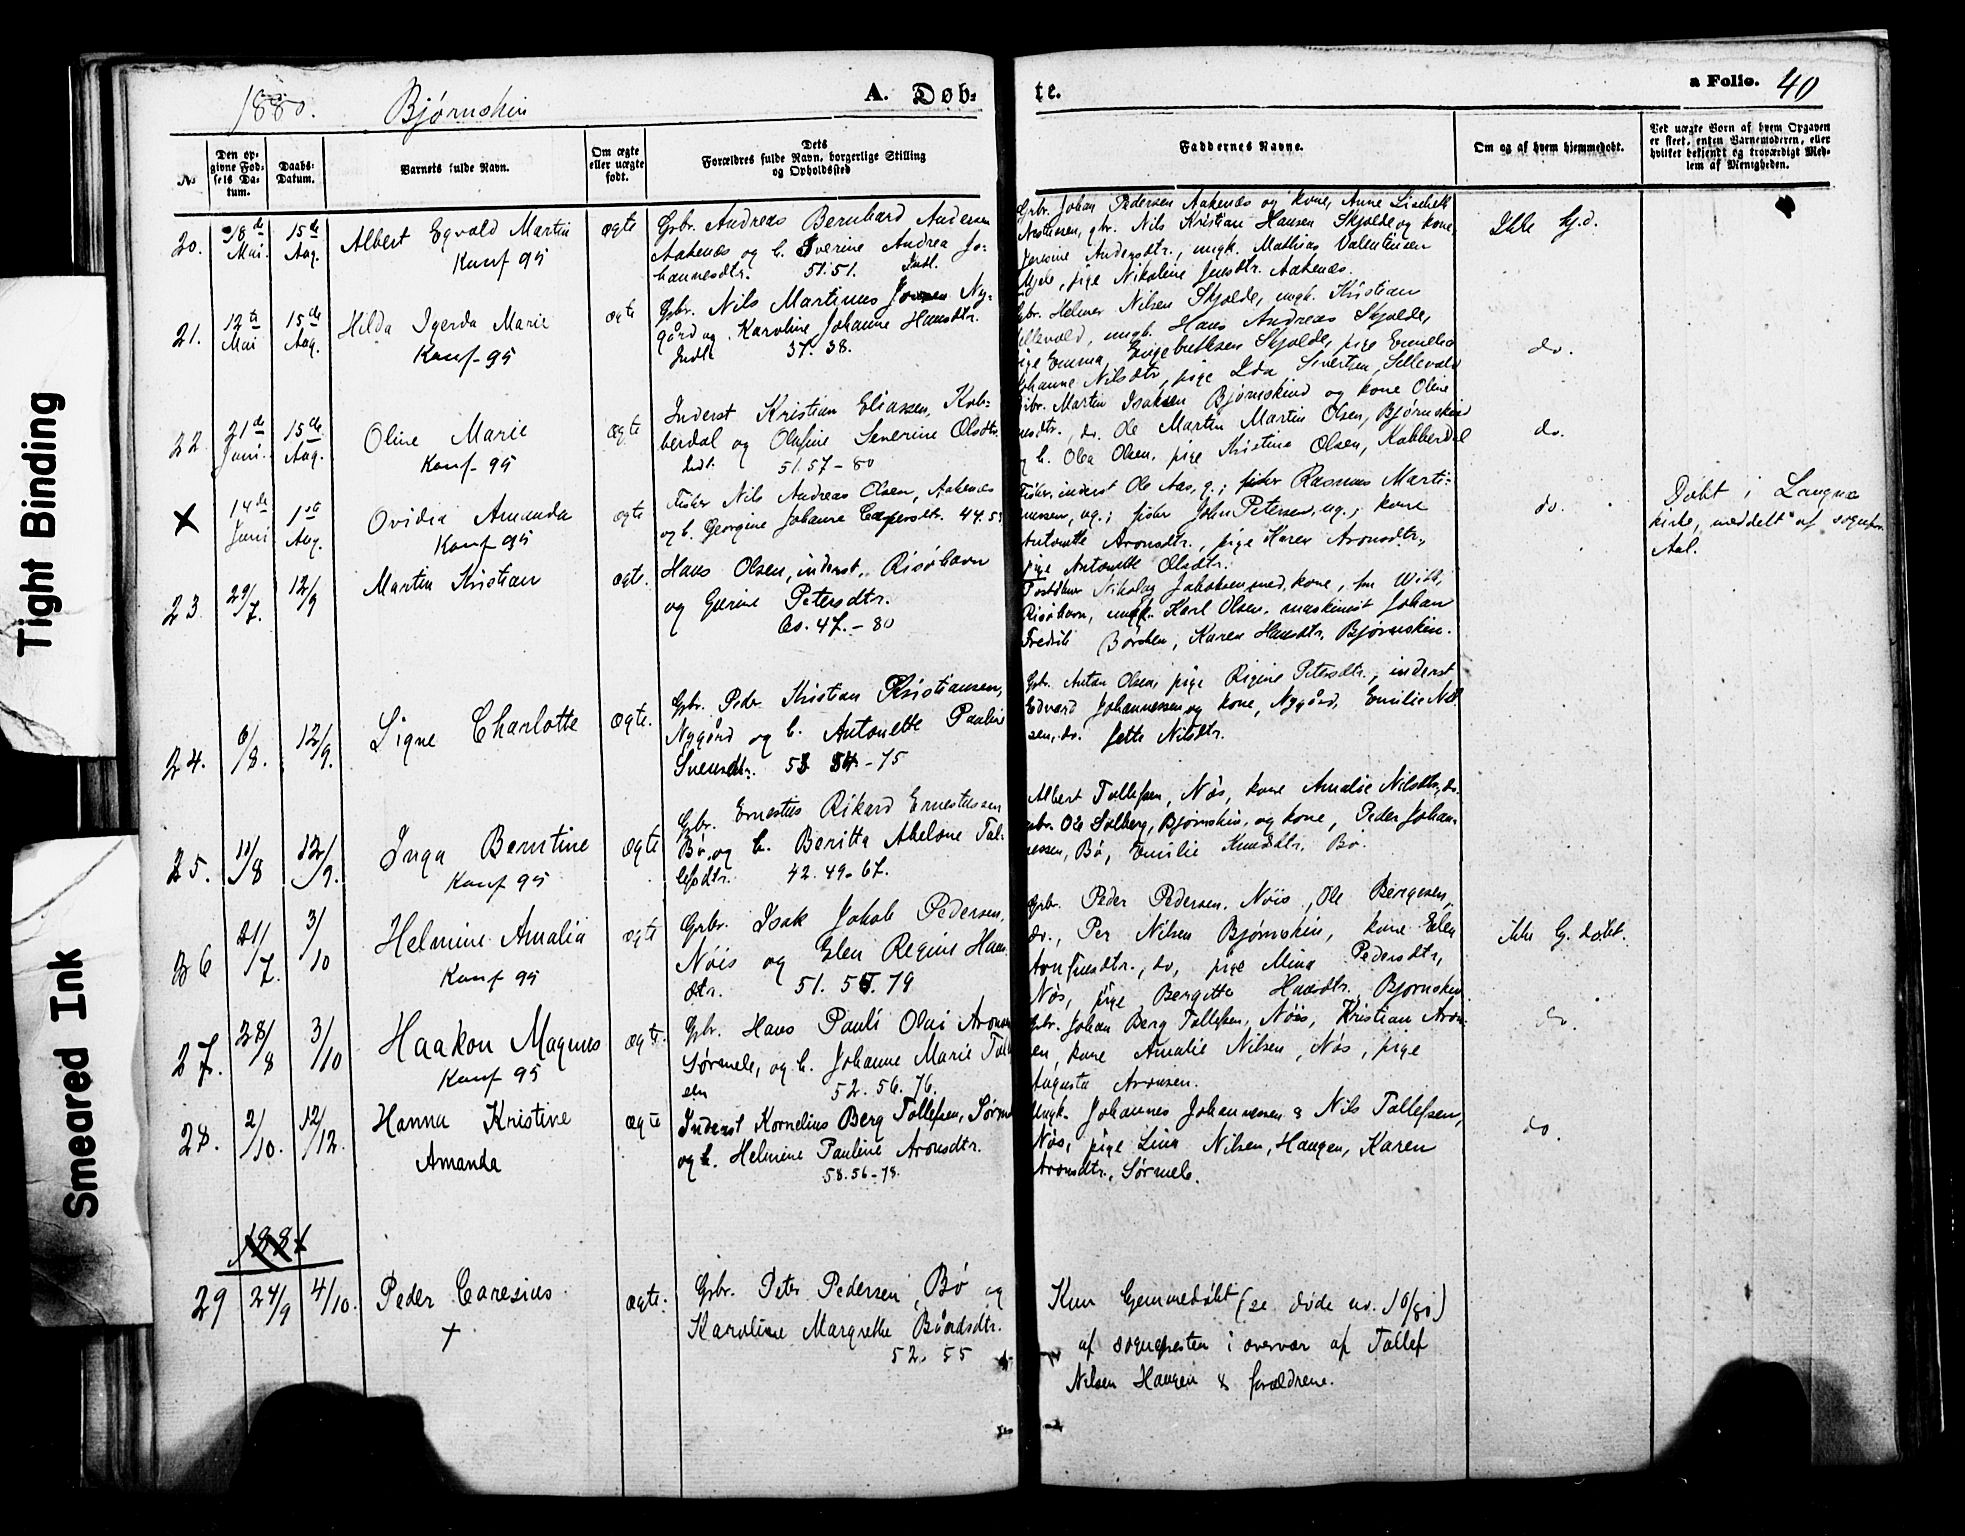 Tight Binding
Smeared Ink
1880. Bjørnskin
A. Døb-
te.
a Folio. 40
No
Den op-
givne Fød-
sels Da-
tum.
Daabs-
Datum.
Barnets fulde Navn.
Om ægte
eller uægte
født.
Dets
Forældres fulde Navn, borgerlige Stilling
og Opholdssted
Faddernes Navne.
Om og af hvem hjemmedøbt.
Ved uægte Børn af hvem Opgaven
er skeet, enten Barnemoderen, eller
hvilket bekjendt og troværdigt Med-
lem af Menigheden.
20. 18de Mai. 15de Aug. Albert Egvald Martin
Konf 95
ægte
Gbr. Andreas Bernhard Andersen
Aakenæs og h. Severine Andrea Jo-
hannesdtr. 51.51. Indl.
Gbr. Johan Pedersen Aakenæs og kone, Anne Lisebett
gbr. Nils Kristian Hansen Skjolde og kone
Andersdtr., ungk. Mathias Valentinsen
pige Nikoline Jensdtr. Aakenæs.
Ikke hj.d.
21. 12te Mai 15de Aug. Hilda Igerda Marie
Konf-95
ægte
Gbr. Nils Martinus Jensen Ny-
gård og Karoline Johanne Hansdtr.
Indl. 37. 38.
Gbr. Helmer Nilsen Skjolde, ungk. Kristian
Sellevold, ungk. Hans Andreas Skjolde,
pige Emma Engebriktsen Skjolde, pige Emelie
Johanne Nilsdtr, pige Ida Sivertsen, Sellevold
do.
22. 21de Juni. 15de Aug. Oline Marie
Konf-95
ægte
Inderst Kristian Eliassen, Kob-
berdal og Olufine Severine Olsdtr.
Indl. 51.57-80
Gbr. Martin Isaksen Bjørnskind og kone Oline
do. Ole Martin Martin Olsen, Bjørnskind
og h. Olea Olsen, pige Kristine Olsen, Kobberdal
do.
X 14de Juni 1ste Aug. Ovidia Amanda
Konf 95
ægte
Fisker Nils Andreas Olsen, Aakenæs
og h. Georgine Johanna Caspersdtr. 44.5
Fisker, inderst Ole Aas, g.; fisker Rasmus Marti-
nussen, ug.; fisker John Petersen, ug.; kone
Antonette Aronsdtr., pige Karen Aronsdtr.,
pige Antonette Olsdtr.
do.
Døbt i Langnæs
kirke, meddelt af sognepr.
Aal.
23. 29/7. 12/9 Martin Kristian
ægte.
Hans Olsen, inderst, Risøhavn
og Gjerine Petersdtr.
do. 47.-80
Nikolay Jakobsen med kone, fru With,
Risøhavn, ungk. Karl Olsen, maskinist Johan
Fredrik Borchen, Karen Hansdtr. Bjørnskin.
24. 6/8. 12/9. Signe Charlotte
ægte.
Gbr. Peder Kristian Kristiansen,
Nygård og h. Antonette Pauline
Svensdtr. 53 54-75
Gbr. Anton Olsen, pige Regine Petersdtr., inderst
Edvard Johannessen og kone, Nygård, Emilie Nil-
sen, do. Jette Nilsdtr.
25. 11/8 12/9. Inga Berntine
Konf 95
ægte
Gbr. Ernestus Rikard Ernestussen
Bø, og h. Beritta Abelone Tol-
lefsdtr. 42. 49. 67.
Albert Tollefsen, Nøs, kone Amalie Nilsdtr, do.
gbr. Ole Solberg, Bjørnskin, og kone, Peder Johan-
nessen, Bø, Emilie Knudsdtr. Bø.
26 21/7. 3/10 Helmine Amalia
Konf 95
ægte
Gbr. Isak Jakob Pedersen,
Nøis og Elen Regine Hans-
dtr. 51. 55. 79
Gbr. Peder Pedersen, Nøis, Ole Bergesen,
do., Per Nilsen Bjørnskin, kone Elen
do, pige Mina Pedersdtr,
Nøs, pige Bergitte Hansdtr. Bjørnskin
Ikke hj. døbt.
27. 28/8 3/10 Haakon Magnus
Konf 95
ægte.
Gbr. Hans Pauli Olai Aronsen
Sørmele, og h. Johanne Marie Toll
52. 56. 76.
Gbr. Johan Berg Tollefsen, Nøis, Kristian Aron-
sen, kone Amalie Nilsen, Nøs, pige
Augusta Aronsen.
do.
28. 2/10. 12/12. Hanna Kristine
Amanda
ægte
Inderst Kornelius Berg Tollefsen, Sørm
og h. Helmine Pauline Aronsdtr.
58.56-78.
Ungk. Johannes Johannessen & Nils Tollefsen,
Nøs, pige Lina Nilsen, Haugen, Karen
Aronsdtr., Sørmele.
do.
1881
29 24/9 4/10. Peder Caresius
+
ægte.
Gbr. Peter Pedersen, Bø og
Karoline Margrethe Bårdsdtr.
52. 55
Kun hjemmedøbt (se døde no. 10/80)
af sognepresten i overvær af Tollef
Nilsen Haugen & forældrene.